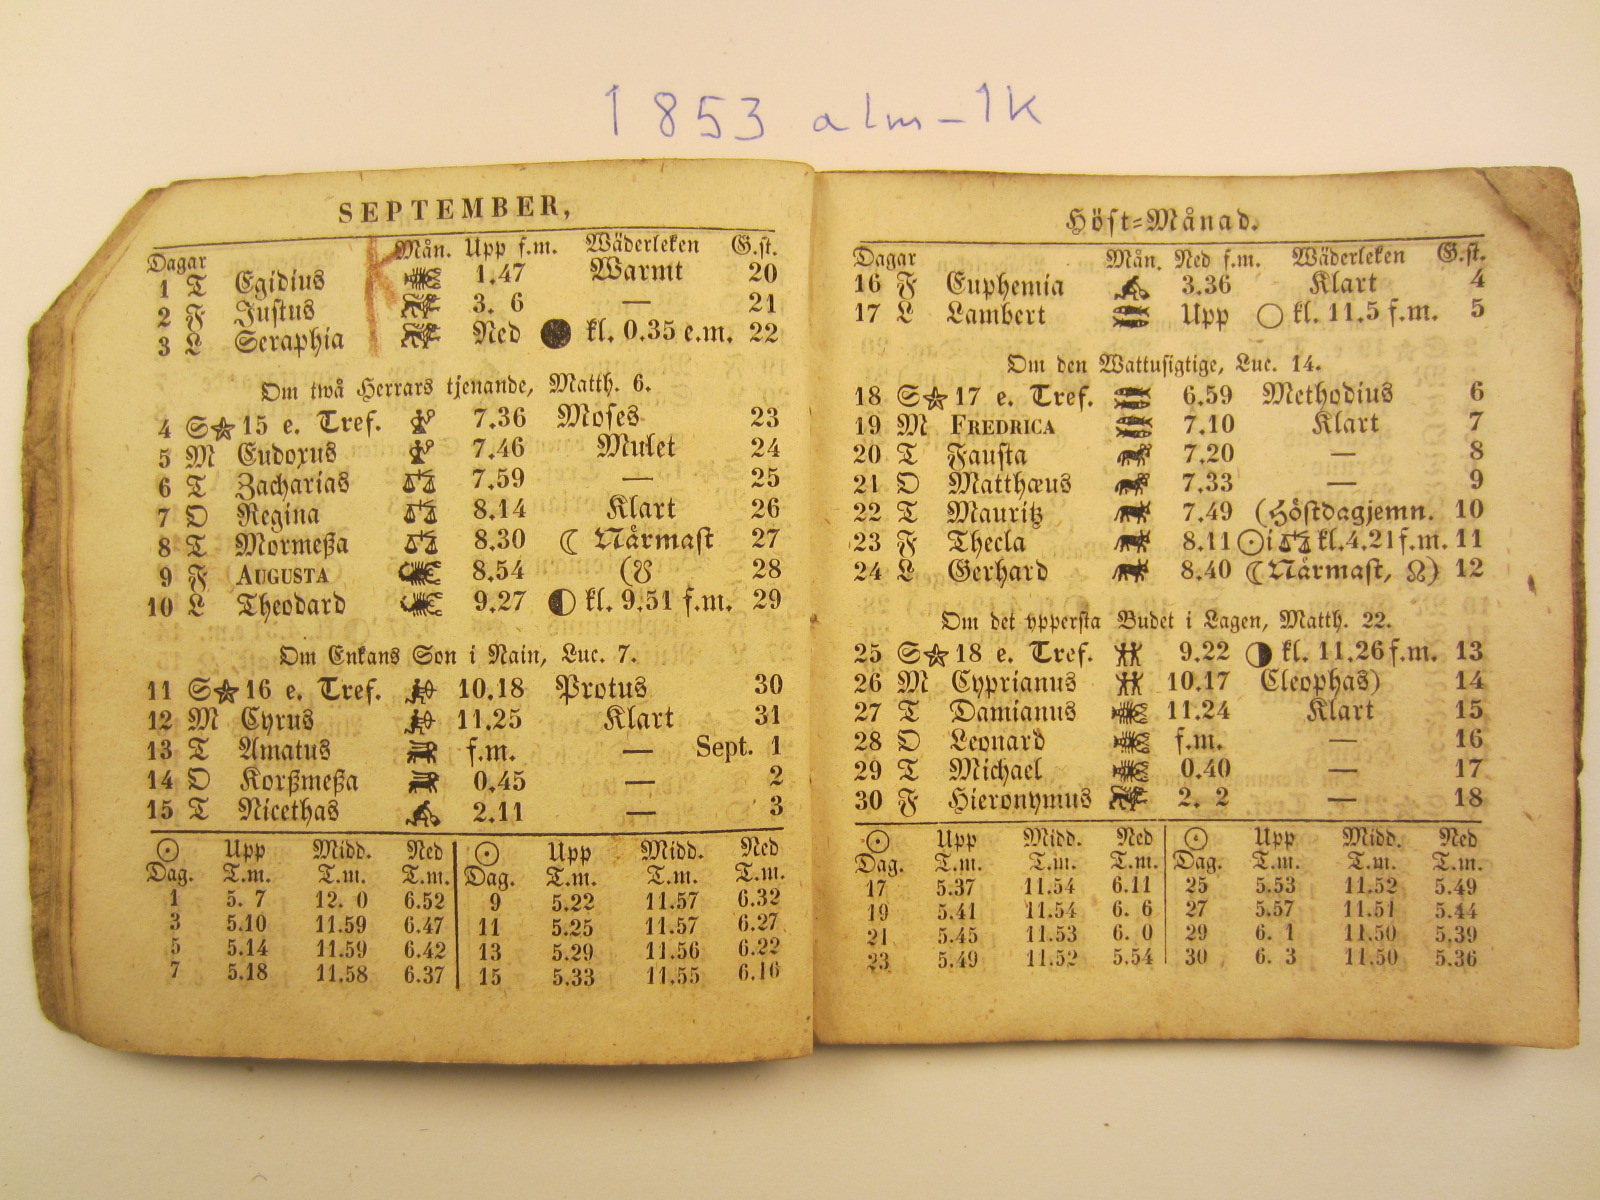 1853 alm-1k
SEPTEMBER,
Dagar Mån. Upp f.m. Wäderleken G.st.
1 T Egidius 1.47 Warmt 20
2 F Justus 3. 6 — 21
3 L Seraphia Ned kl. 0.35 e.m. 22
Om twå Herrars tjenande, Matth. 6.
4 S 15 e. Tref. 7.36 Moses 23
5 M Eudoxus 7.46 Mulet 24
6 T Zacharias 7.59 — 25
7 O Regina 8.14 Klart 26
8 T Mormeßa 8.30 ☾ Närmast 27
9 F AUGUSTA 8.54 (☋ 28
10 L Theodard 9.27 kl. 9.51 f.m. 29
Om Enkans Son i Nain, Luc. 7.
11 S 16 e. Tref. 10.18 Protus 30
12 M Cyrus 11.25 Klart 31
13 T Amatus f.m. — Sept. 1
14 O Korßmeßa 0.45 — 2
15 T Nicethas 2.11 — 3
☉ Upp Midd. Ned ☉ Upp Midd. Ned
Dag. T.m. T.m. T.m. Dag. T.m. T.m. T.m.
1 5. 7 12. 0 6.52 9 5.22 11.57 6.32
3 5.10 11.59 6.47 11 5.25 11.57 6.27
5 5.14 11.59 6.42 13 5.29 11.56 6.22
7 5.18 11.58 6.37 15 5.33 11.55 6.16
Höst-Månad.
Dagar Mån. Ned f.m. Wäderleken G.st.
16 F Euphemia 3.36 Klart 4
17 L Lambert Upp kl. 11.5 f.m. 5
Om den Wattusigtige, Luc. 14.
18 S 17 e. Tref. 6.59 Methodius 6
19 M FREDRICA 7.10 Klart 7
20 T Fausta 7.20 — 8
21 O Matthæus 7.33 — 9
22 T Mauritz 7.49 (Höstdagjemn. 10
23 F Thecla 8.11 ☉ i ♎ kl.4.21 f.m. 11
24 L Gerhard 8.40 (☾ Närmast, ☊) 12
Om det yppersta Budet i Lagen, Matth. 22.
25 S 18 e. Tref. 9.22 kl. 11.26 f.m. 13
26 M Cyprianus 10.17 Cleophas) 14
27 T Damianus 11.24 Klart 15
28 O Leonard f.m. — 16
29 T Michael 0.40 — 17
30 F Hieronymus 2. 2 — 18
☉ Upp Midd. Ned ☉ Upp Midd. Ned
Dag. T.m. T.m. T.m. Dag. T.m. T.m. T.m.
17 5.37 11.54 6.11 25 5.53 11.52 5.49
19 5.41 11.54 6. 6 27 5.57 11.51 5.44
21 5.45 11.53 6. 0 29 6. 1 11.50 5.39
23 5.49 11.52 5.54 30 6. 3 11.50 5.36